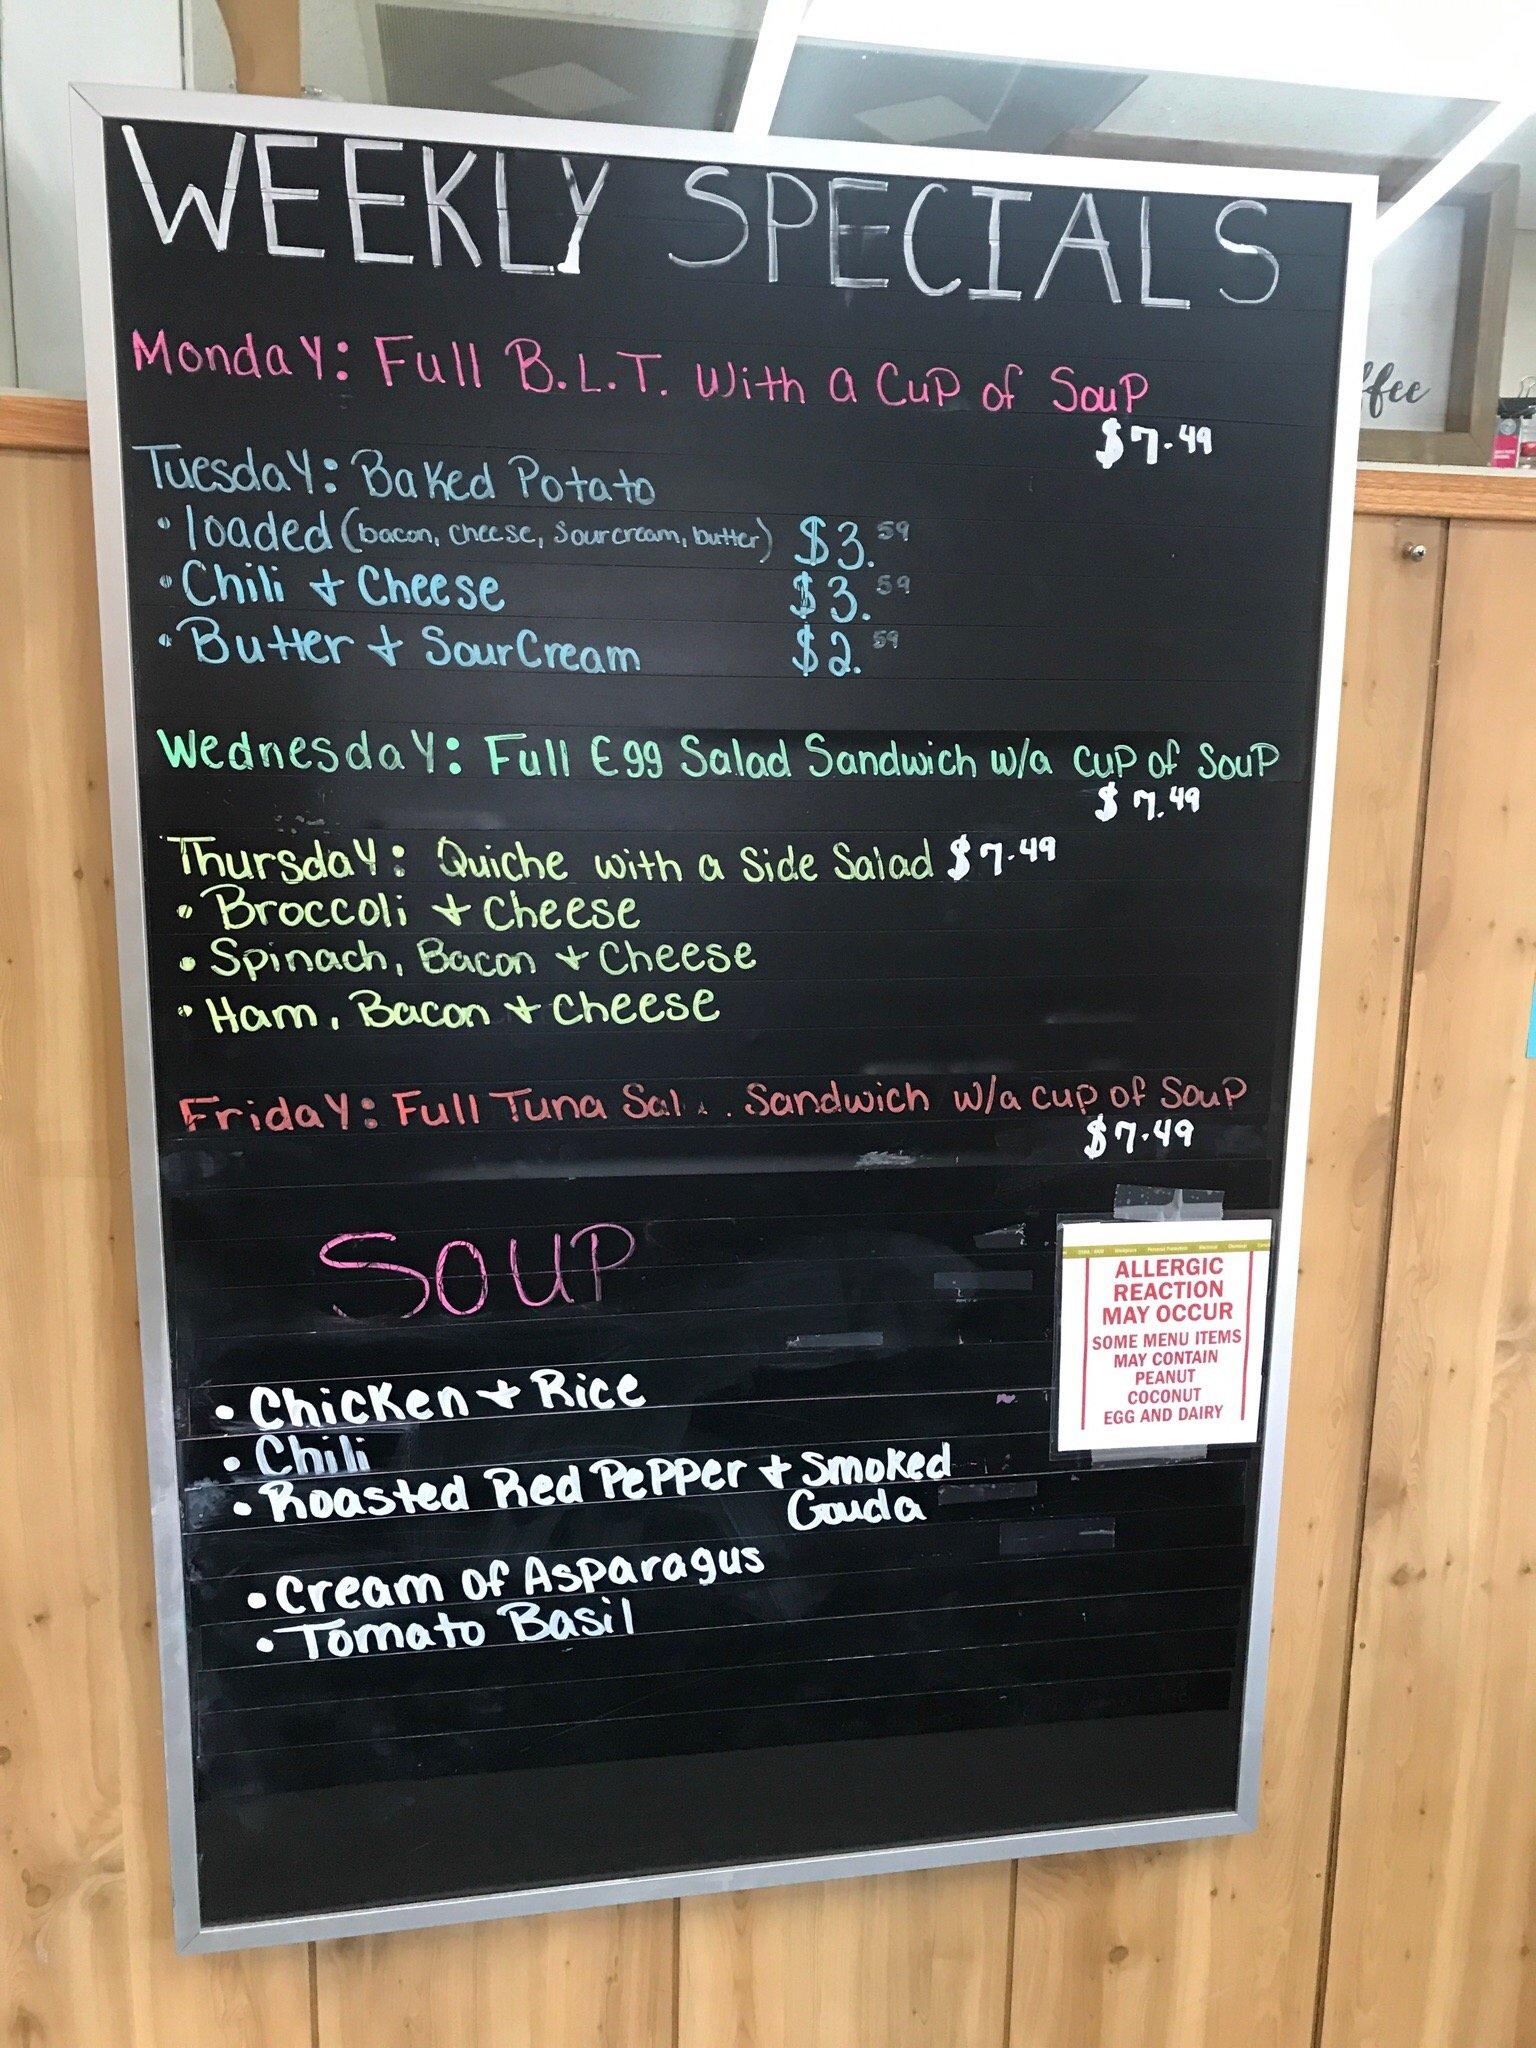 WEEKLY SPECIALS
Monday: Full B.L.T. with a Cup of Soup
$7.49
Tuesday: Baked Potato
• loaded (bacon, cheese, sourcream, butter) $3.59
• Chili + Cheese $3.59
• Butter + SourCream $2.59
Wednesday: Full Egg Salad Sandwich w/a cup of Soup
$7.49
Thursday: Quiche with a Side Salad $7.49
• Broccoli + Cheese
• Spinach, Bacon + Cheese
• Ham, Bacon + Cheese
Friday: Full Tuna Sal Sandwich w/a cup of Soup
$7.49
SOUP
• Chicken + Rice
• Chili
• Roasted Red Pepper + Smoked
Gouda
• Cream of Asparagus
• Tomato Basil
ALLERGIC
REACTION
MAY OCCUR
SOME MENU ITEMS
MAY CONTAIN
PEANUT
COCONUT
EGG AND DAIRY
ffee